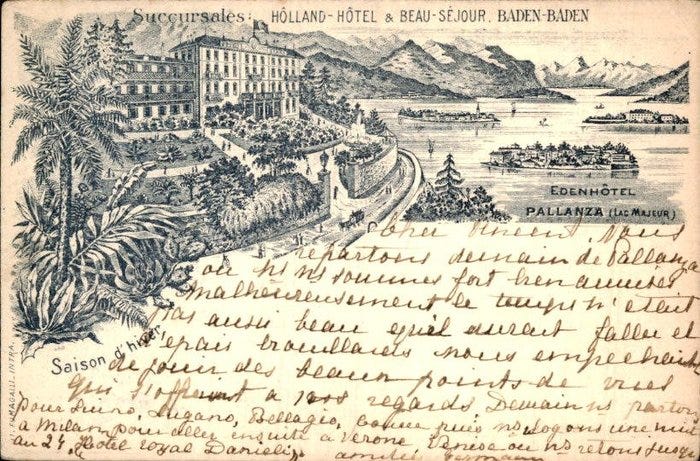 Succursales: HÔLLAND-HÔTEL & BEAU-SÉJOUR. BADEN-BADEN
EDENHÔTEL
PALLANZA (LAC MAJEUR)
Saison d'hiver
FUMAGALLI. INTRA.
Cher Vincent, Nous
repartons demain de Pallanza
ou ns ns sommes fort bien amusés
malheureusement le temps n'était
pas aussi beau qu'il aurait fallu et
d'épais brouillards nous empêchait
de jouir des beaux points de vues
qui s'offrent à nos regards. Demain ns partons
pour Luino, Lugano, Bellagio, puis ns logons une nuit
à Milan pour aller ensuite à Verone Venise ou ns retons jusqu
au 24. Hotel royal Danieli
amitiés